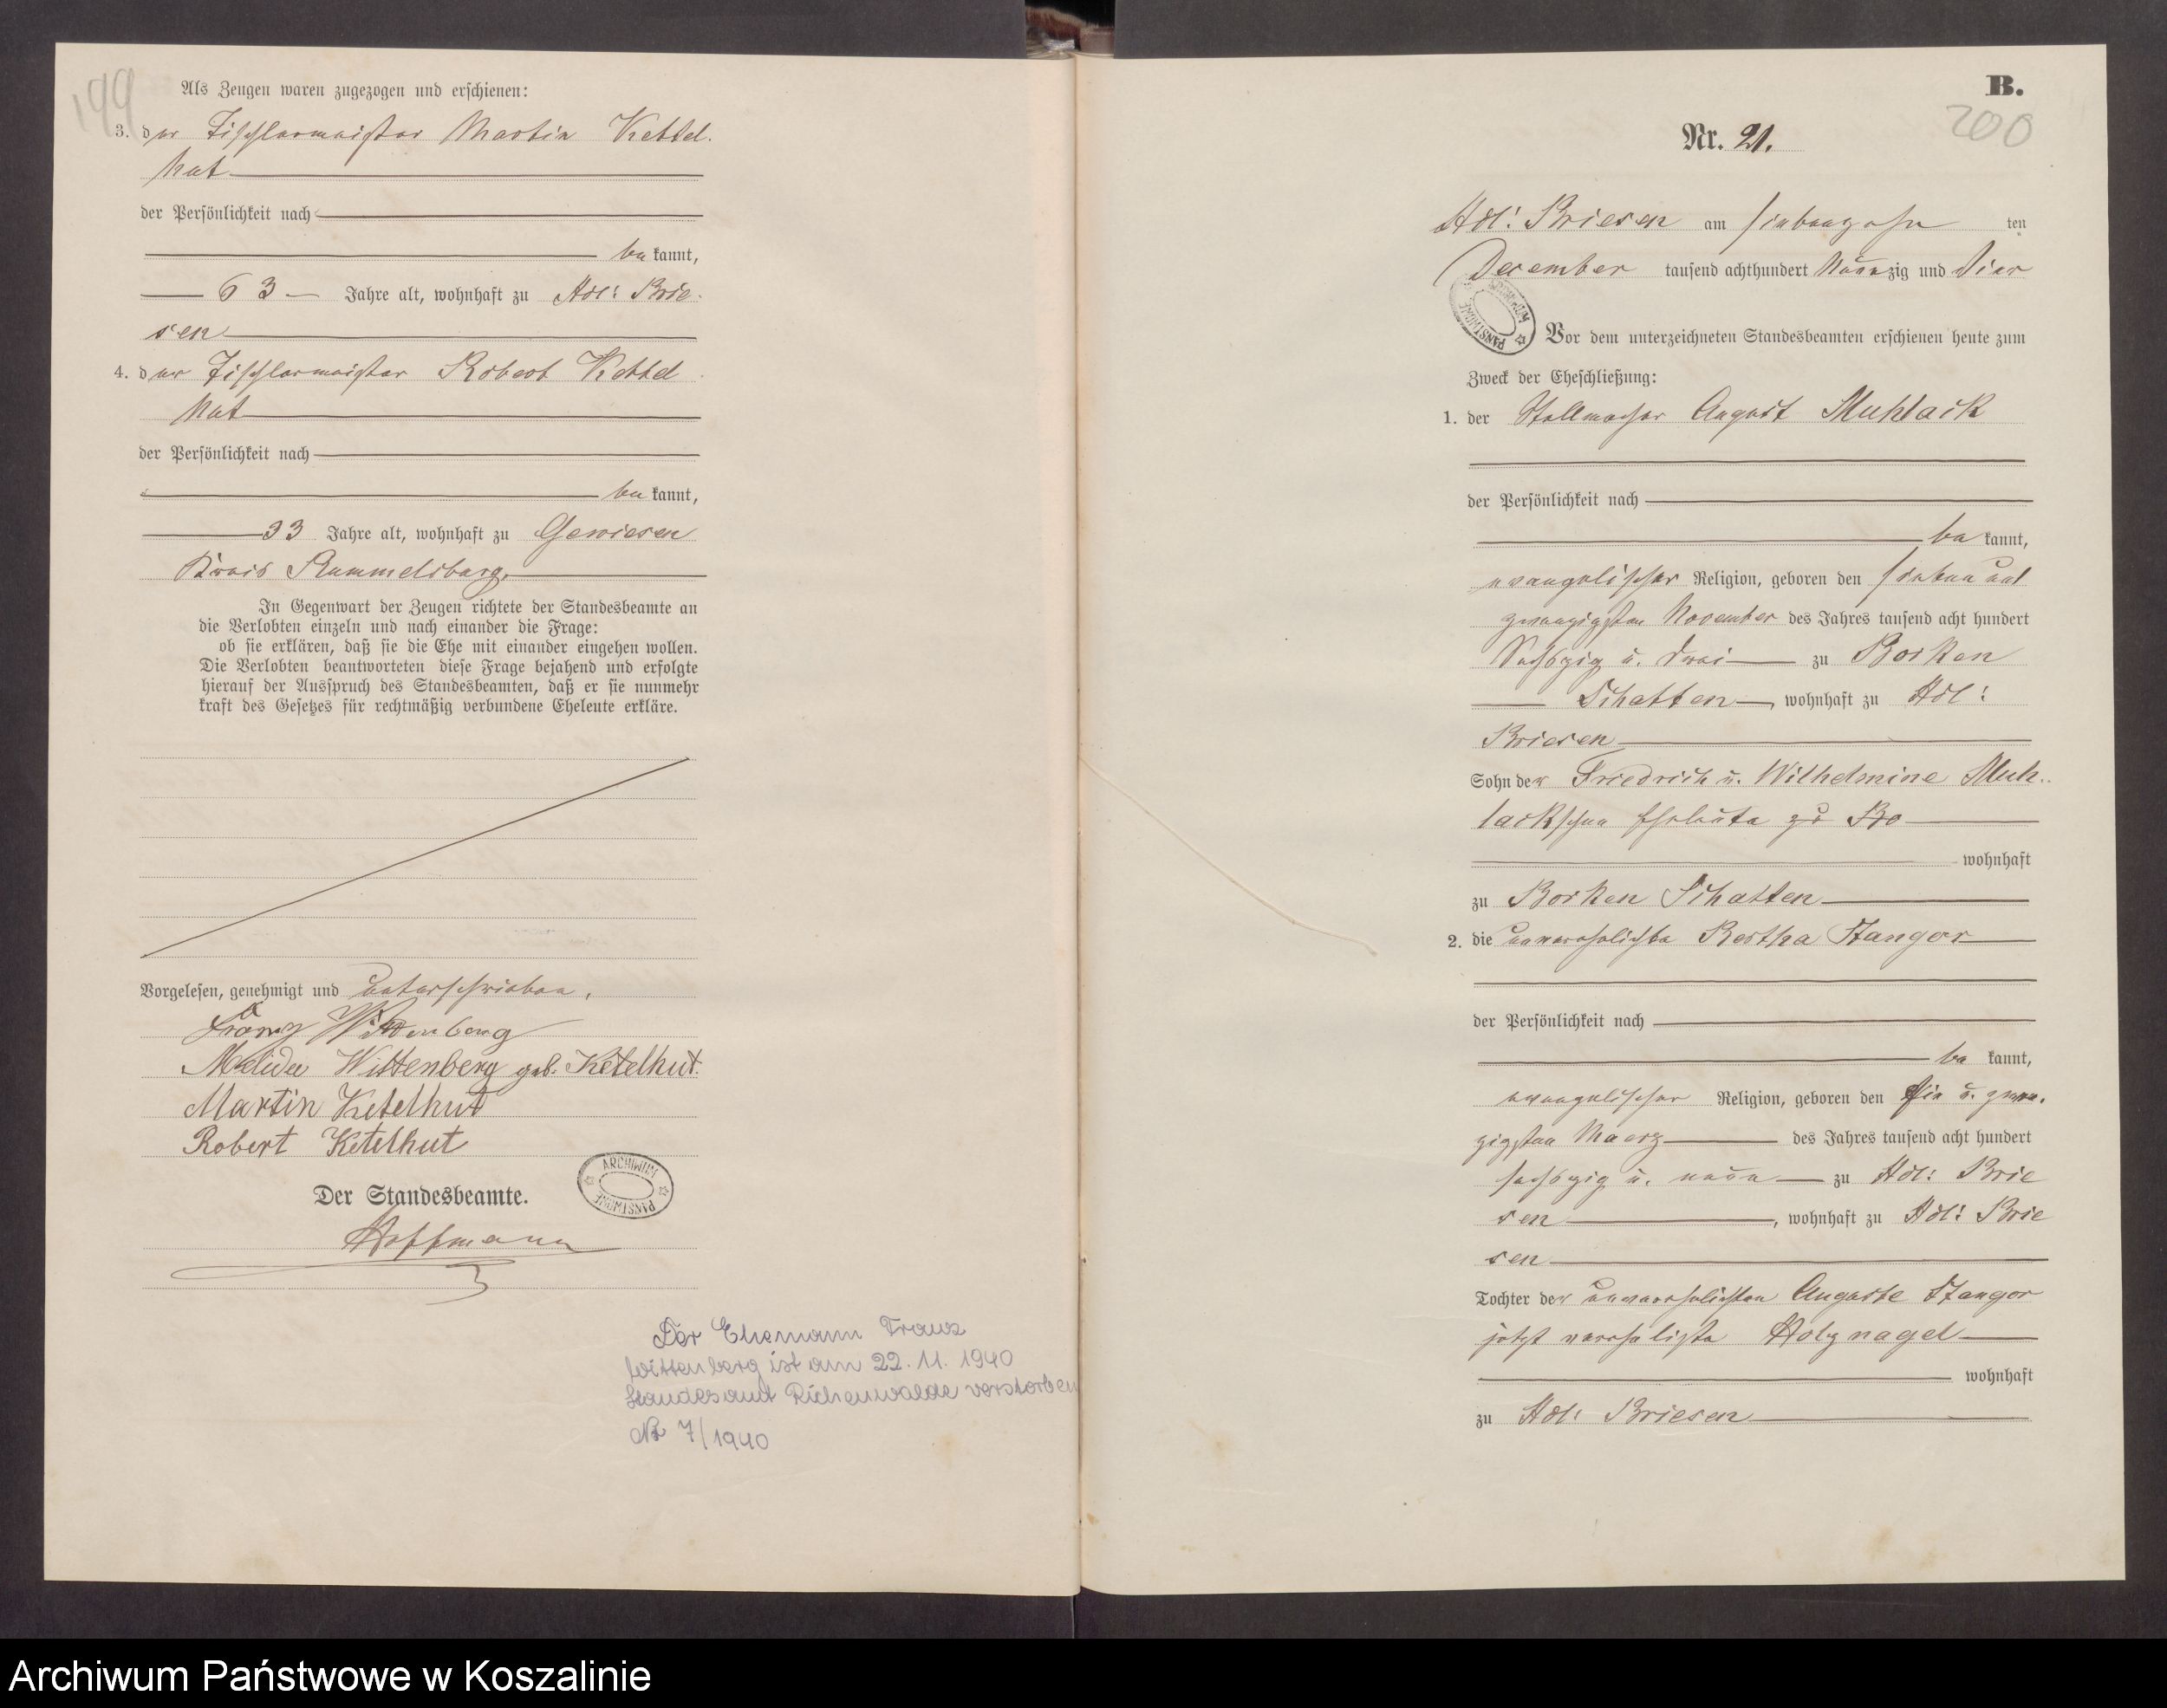 199
Als Zeugen waren zugezogen und erschienen:
3. der Tischlermeister Martin Kettel.
hut
der Persönlichkeit nach
be kannt,
63 Jahre alt, wohnhaft zu Adl: Brie.
sen
4. der Tischlermeister Robert Kettel
hut
der Persönlichkeit nach
be kannt,
33 Jahre alt, wohnhaft zu Gewiesen
Kreis Rummelsburg.
In Gegenwart der Zeugen richtete der Standesbeamte an
die Verlobten einzeln und nach einander die Frage:
ob sie erklären, daß sie die Ehe mit einander eingehen wollen.
Die Verlobten beantworteten diese Frage bejahend und erfolgte
hierauf der Ausspruch des Standesbeamten, daß er sie nunmehr
kraft des Gesetzes für rechtmäßig verbundene Eheleute erkläre.
Vorgelesen, genehmigt und unterschrieben.
Franz Wittenberg
Wittenberg geb. Ketelhut.
Martin Ketelhut
Robert Ketelhut
Der Standesbeamte.
Hoffmann
ARCHIWUM PAŃSTWOWE
Der Ehemann Franz
Wittenberg ist am 22. 11. 1940
Standesamt verstorben
Nr 7/1940
B.
200
Nr. 21.
Adl: Briesen am siebenzehn ten
December tausend achthundert Neunzig und Vier
ARCHIWUM PAŃSTWOWE
Vor dem unterzeichneten Standesbeamten erschienen heute zum
Zweck der Eheschließung:
1. der Stellmacher August Muhlack
der Persönlichkeit nach
be kannt,
evangelischer Religion, geboren den sieben und
zwanzigsten November des Jahres tausend acht hundert
Sechszig u. drei zu Borken
Schatten, wohnhaft zu Adl:
Briesen
Sohn der Friedrich u. Wilhelmine Muh..
lackschen Eheleute zu Bo
wohnhaft
zu Borken Schatten
2. die unverehelichte Bertha Stanger
der Persönlichkeit nach
be kannt,
evangelischer Religion, geboren den Ein u. zwan.
zigsten Maerz des Jahres tausend acht hundert
sechszig u. neun zu Adl: Brie
sen, wohnhaft zu Adl: Brie
sen
Tochter der unverehelichten Auguste Stanger
jetzt verehelichte Holznagel
wohnhaft
zu Adl: Briesen
Archiwum Państwowe w Koszalinie